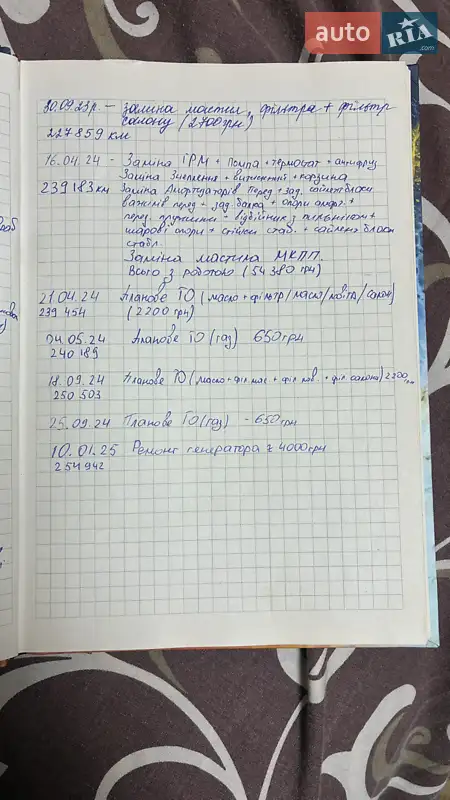 auto RIA .com
30.09.23р. - Заміна мастил, фільтра + фільтр
салону (2700грн)
227859 км
16.04.24 - Заміна ГРМ + Помпа + термостат + антифриз
Заміна Зчеплення + витискний + корзина
239183 км Заміна Амортизаторів Перед + зад. сайлентблоки
важілів перед + зад. балка + опори аморт. +
перед. пружини + відбійник з пильником +
шарові опори + стійки стаб. + сайлент блоки
стабл.
Заміна мастила МКПП.
Всього з роботою (54380 грн)
21.04.24 Планове ТО (масло + фільтр/масло/повітр/салон)
239 454 (2200 грн)
04.05.24 Планове ТО (газ) 650 грн
240189
18.09.24 Планове ТО (масло + філ. мас. + філ. пов. + філ. салона) 2200 грн
250 503
25.09.24 Планове ТО (газ) - 650 грн
10.01.25 Ремонт генератора 4000 грн
254942